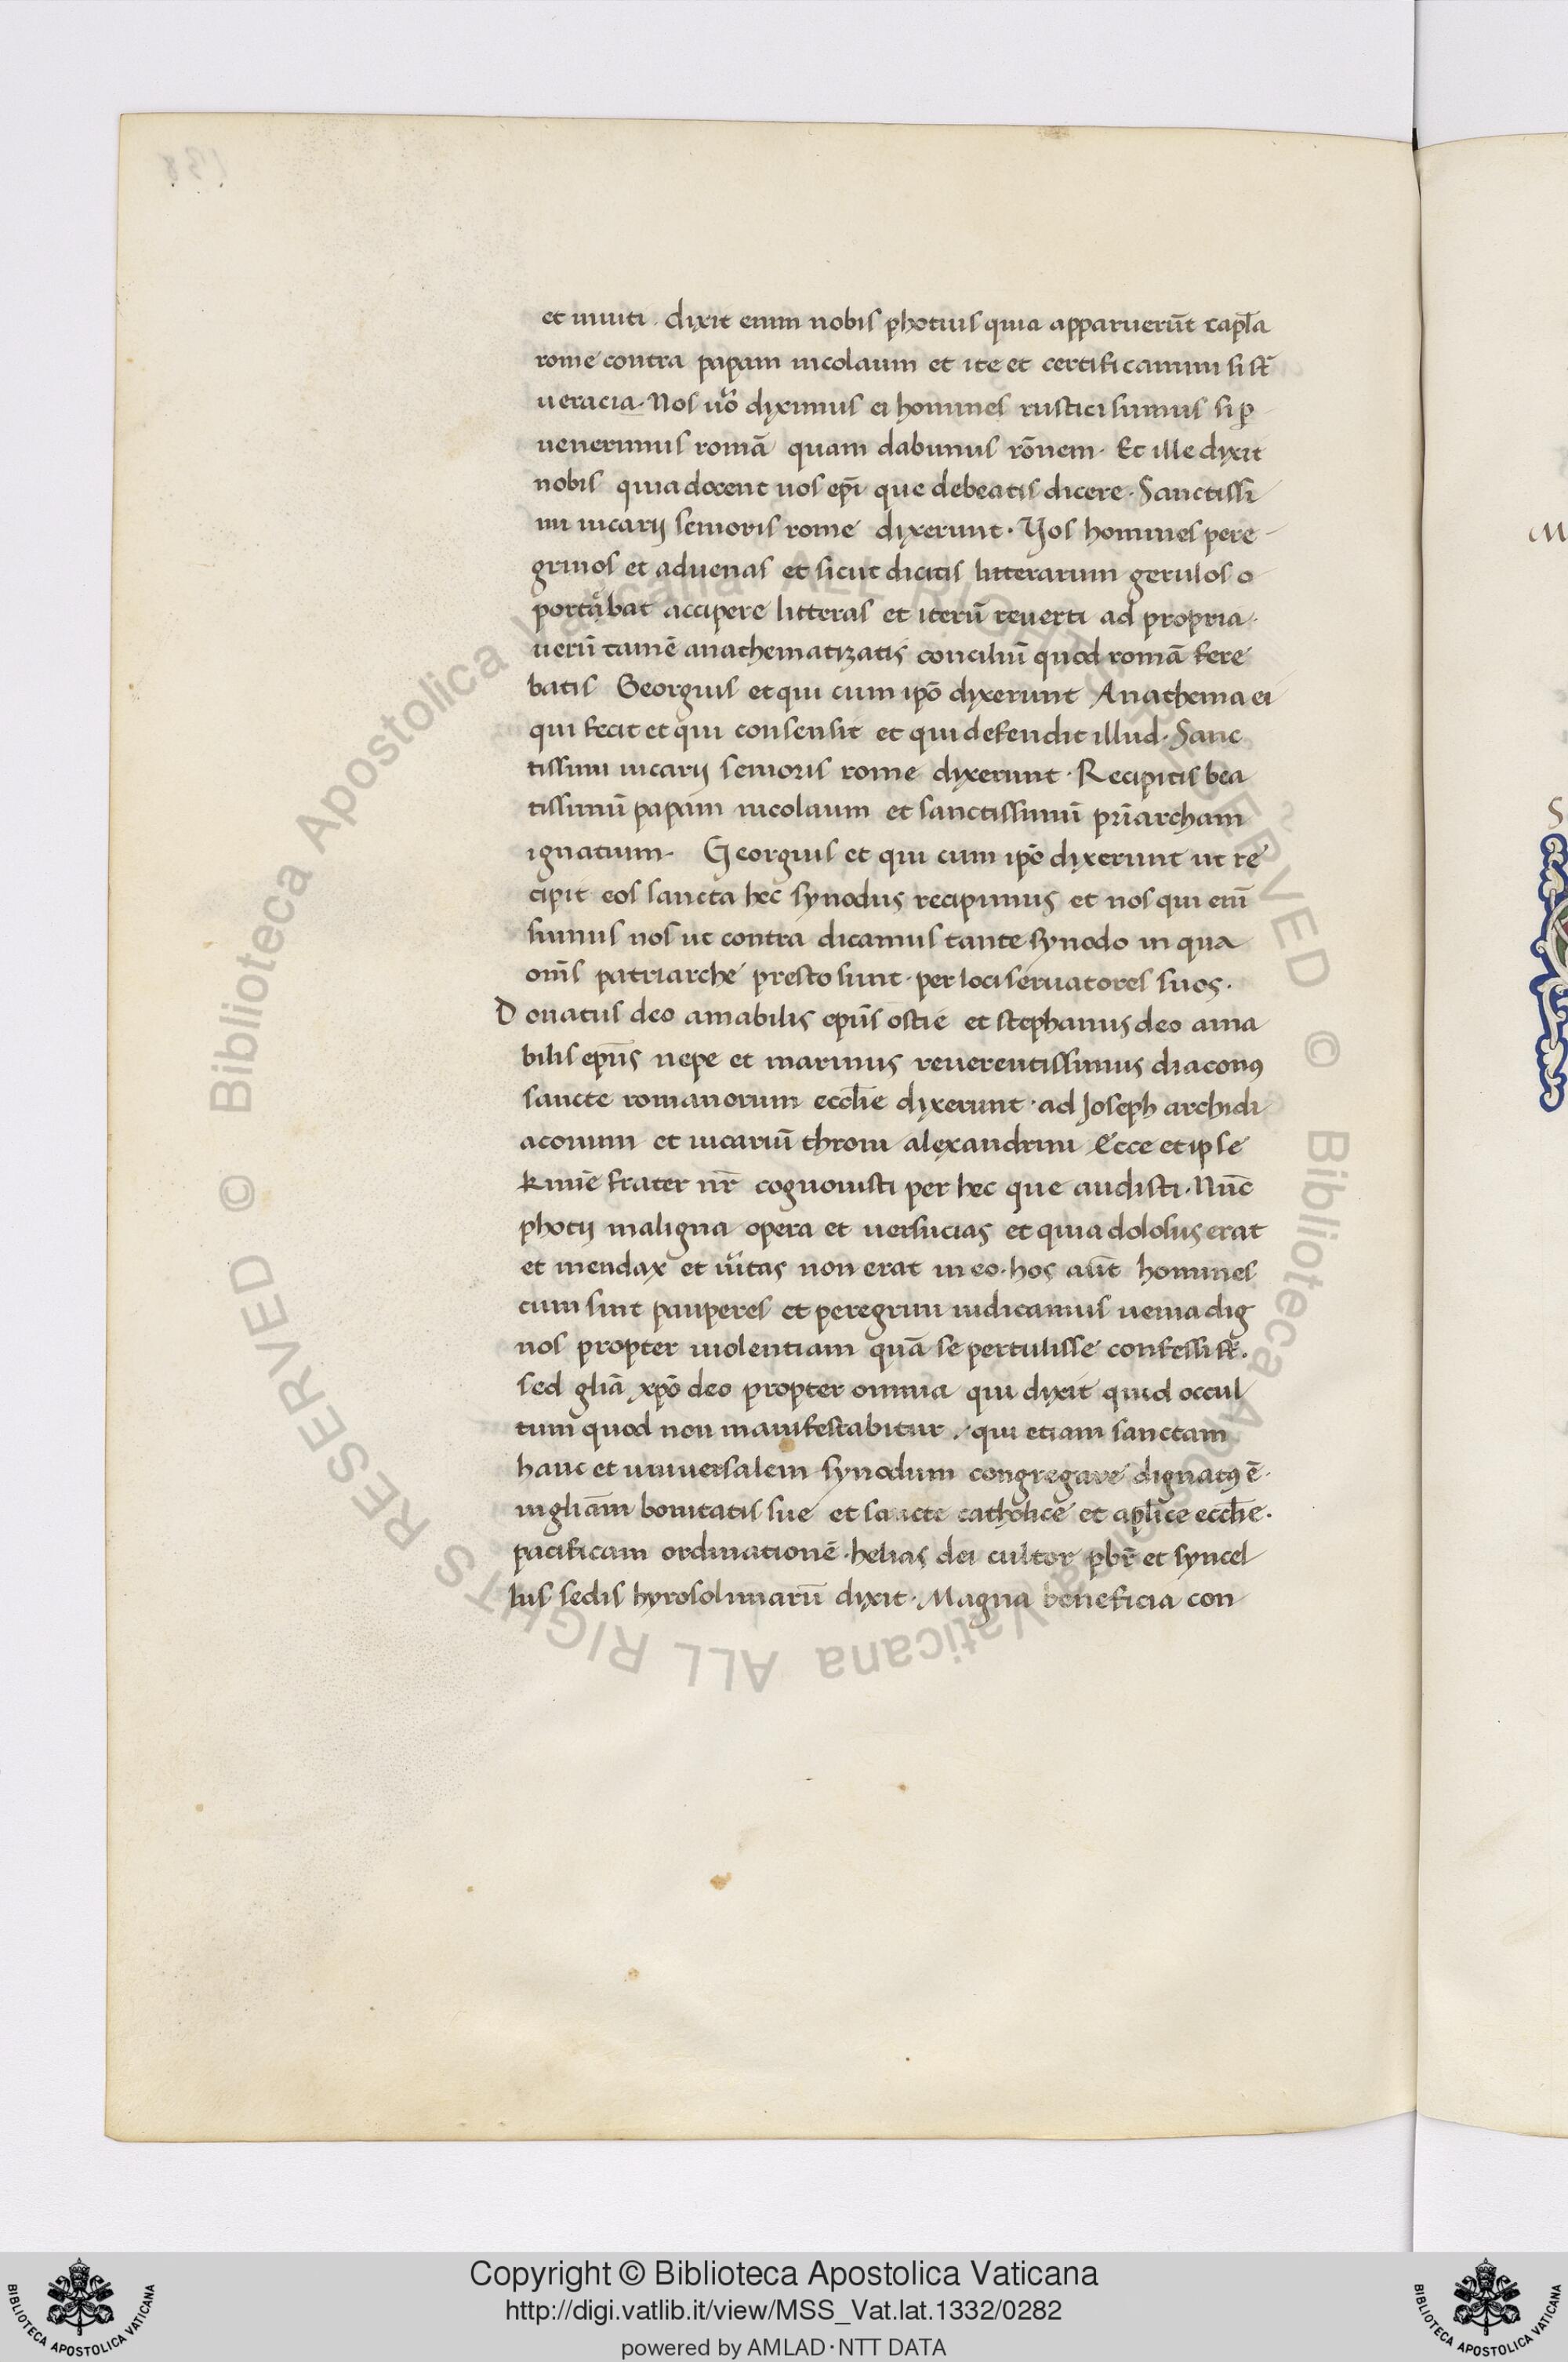 et inuiti. dixit enim nobis photius quia apparuerūt capl̄a
rome contra papam nicolaum et ite et certificamini si st̄
ueracia. Nos uo᷒ diximus ei homines rustici sumus si ꝑ
uenerimus romā quam dabimus rōnem. Et ille dyxit
nobis quia docent uos epī que debeatis dicere. Sanctissi
mi uicarij senioris rome dixerunt. Vos homines pere
grinos et aduenas et sicut dicitis litterarum gerulos o
portabat accipere litteras et iterū reuerti ad propria.
uerū tamē anathematizatis conciliū quod romā fere
batis Georgius et qui cum ipō dyxerunt Anathema ei
qui fecit et qui consensit et qui defendit illud. Sanc
tissimi uicarij senioris rome dyxerunt. Recipitis bea
tissimū papam nicolaum et sanctissimū pr̄iarcham
ignatium. Georgius et qui cum ipō dixerunt ut re
cipit eos sancta hec synodus recipimus et nos qui enī
sumus nos ut contra dicamus tante synodo in qua
om̄s patriarche presto sunt. per loci seruatores suos.
Donatus deo amabilis ep̄us ostie et stephanus deo ama
bilis ep̄us nepe et marinus reuerentissimus diaconꝰ
sancte romanorum eccl̄ie dyxerunt. ad Joseph archidi
aconum et uicariū throni alexandrini Ecce et ipse
kmīe frater nr̄ cognouisti per hec que audisti. Nūc
photij maligna opera et uersucias et quia dolosus erat
et mendax et ūitas non erat in eo. hos aūt homines
cum sint pauperes et peregrini iudicamus uenia dig
nos propter uiolentiam quā se pertulisse confessi st̄.
sed gl̄iā xp̄o deo propter omnia qui dyxit quid occul
tum quod non manifestabitur. qui etiam sanctam
hanc et uniuersalem synodum congregare dignatꝰ ē.
in gl̄iam bonitatis sue et sancte catholice et apl̄ice eccl̄ie.
pacificam ordinationē. helias dei cultor pbr̄ et syncel
lus sedis hyrosolimarū dixit. Magna beneficia con
Copyright © Biblioteca Apostolica Vaticana
http://digi.vatlib.it/view/MSS_Vat.lat.1332/0282
powered by AMLAD·NTT DATA
BIBLIOTECA APOSTOLICA VATICANA
BIBLIOTECA APOSTOLICA VATICANA
© Biblioteca Apostolica Vaticana ALL RIGHTS RESERVED © Biblioteca Apostolica Vaticana ALL RIGHTS RESERVED